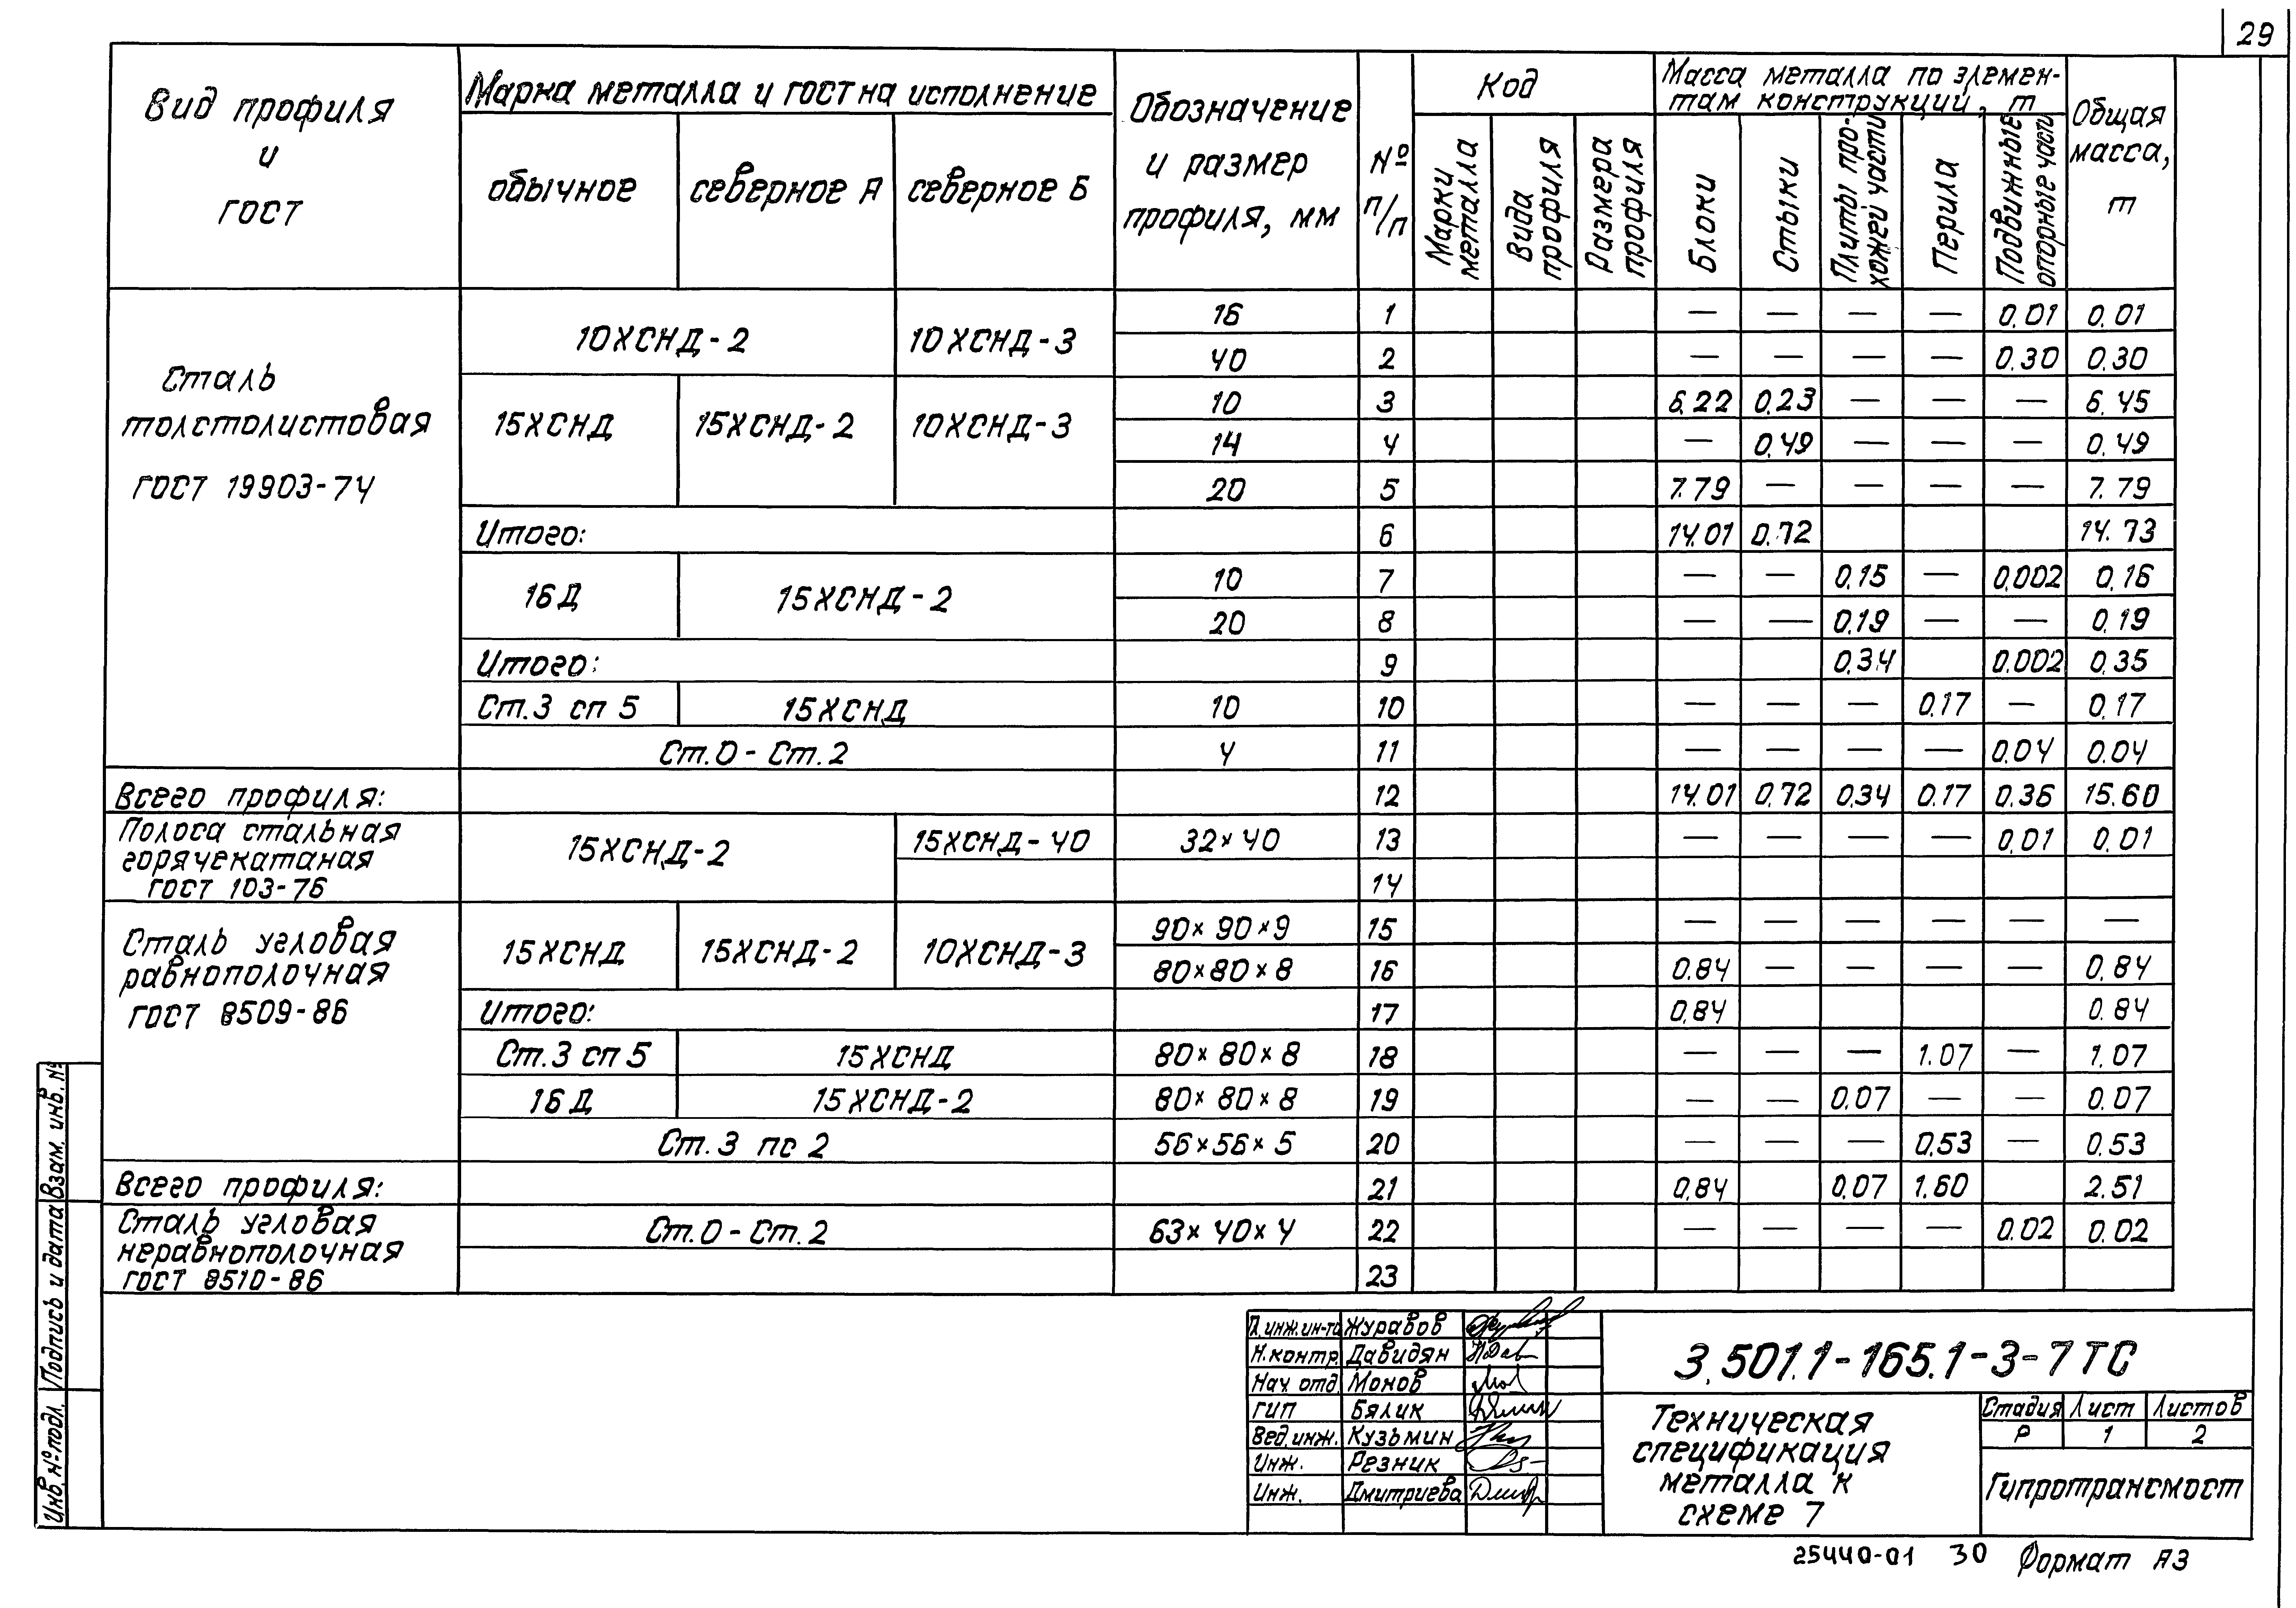 29
Вид профиля и ГОСТ
Марка металла и ГОСТ на исполнение
обычное
северное А
северное Б
Обозначение и размер профиля, мм
№ п/п
Код
Марки металла
Вида профиля
Размера профиля
Масса металла по элемен-
там конструкций, т
Блоки
Стыки
Плиты про-
хожей части
Перила
Подвижные
опорные части
Общая масса, т
Сталь
толстолистовая
ГОСТ 19903-74
10ХСНД-2 10ХСНД-3
16 1 — — — — 0,01 0,01
40 2 — — — — 0.30 0.30
15ХСНД 15ХСНД-2 10ХСНД-3
10 3 6.22 0.23 — — — 6.45
14 4 — 0,49 — — — 0.49
20 5 7.79 — — — — 7.79
Итого: 6 14.01 0.72 14.73
16Д 15ХСНД-2
10 7 — — 0,15 — 0,002 0,16
20 8 — — 0.19 — — 0,19
Итого: 9 0,34 0.002 0,35
Ст.3 сп 5 15ХСНД 10 10 — — — 0.17 — 0,17
Ст.0 - Ст.2 4 11 — — — — 0.04 0.04
Всего профиля: 12 14.01 0,72 0,34 0.17 0.36 15.60
Полоса стальная
горячекатаная
ГОСТ 103-76
15ХСНД-2 15ХСНД-40 32×40 13 — — — — 0,01 0,01
14
Сталь угловая
равнополочная
ГОСТ 8509-86
15ХСНД 15ХСНД-2 10ХСНД-3
90×90×9 15 — — — — — —
80×80×8 16 0.84 — — — — 0,84
Итого: 17 0,84 0.84
Ст.3 сп 5 15ХСНД 80×80×8 18 — — — 1.07 — 1.07
16Д 15ХСНД-2 80×80×8 19 — — 0.07 — — 0.07
Ст.3 пс 2 56×56×5 20 — — — 0,53 — 0.53
Всего профиля: 21 0,84 0,07 1.60 2.51
Сталь угловая
неравнополочная
ГОСТ 8510-86
Ст.0 - Ст.2 63×40×4 22 — — — — 0.02 0.02
23
Взам. инв. №
Подпись и дата
Инв. № подл.
Гл. инж. ин-та Журавов
Н.контр. Давидян
Нач. отд. Монов
ГИП Бялик
Вед. инж. Кузьмин
Инж. Резник
Инж. Дмитриева
3.501.1-165.1-3-7 ТС
Техническая
спецификация
металла к
схеме 7
Стадия Лист Листов
Р 1 2
Гипротрансмост
25440-01 30 Формат А3